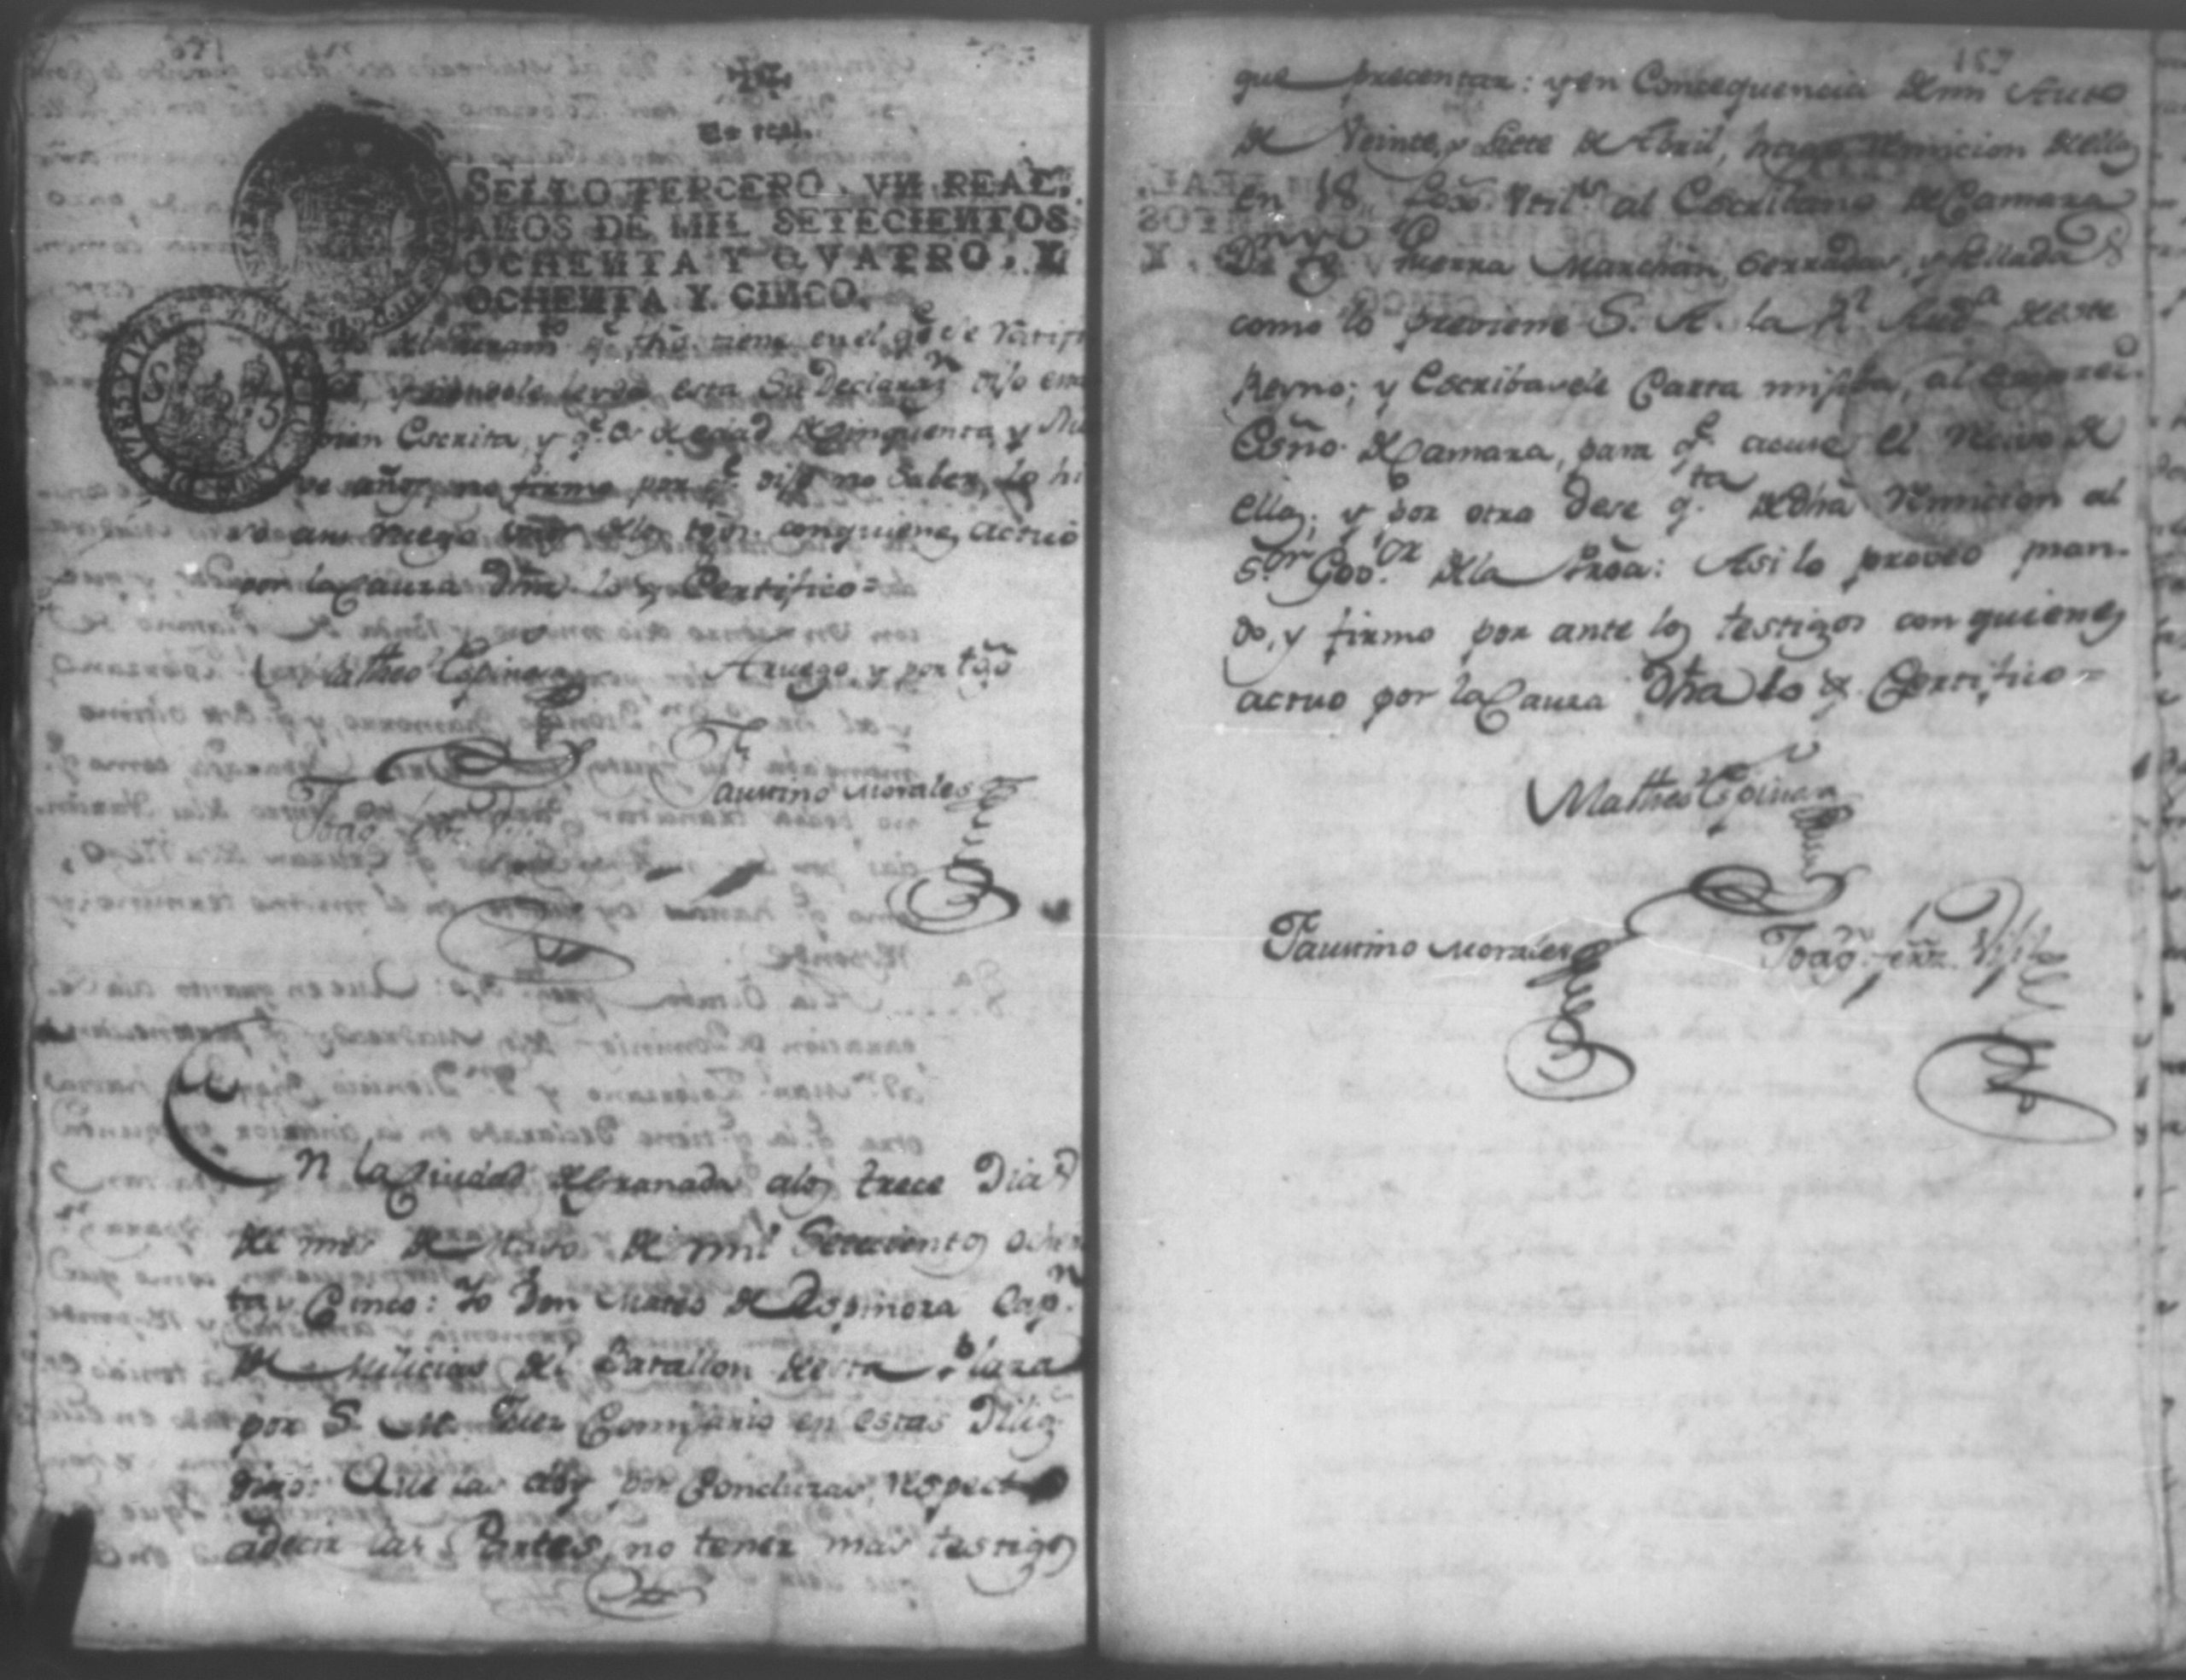 Un real.
SELLO TERCERO, VN REAL,
AÑOS DE MIL SETECIENTOS
OCHENTA Y QVATRO, Y
OCHENTA Y CINCO.
del Juram.to q.e fho tiene en el q.e se ratifi
y siendole leyda esta Su Declaraz.n dijo estar
bien Escrita, y q.e es de edad de cinquenta y Nue
ve años, no firmo por q.e dijo no Saber, lo hi
so a su ruego uno dellos tgos. con quienes actuo
por la Causa Dha. lo q Certifico =
Matheo Espinosa
A ruego, y por tgõ
Faustino Morales
Joaq.n
En la Ciudad de Granada a los trece Dias
del mes de Mayo de mil Setecientos ochen
ta y Cinco: Yo Don Mateo de Espinoza Cap.n
de Milicias del Batallon desta Plaza
por S. M. Juez Comisario en estas Dilig.
digo: Que las doy por Concluzas, respecto
a decir las Partes, no tener mas testigos
157
que precentar: y en Concequencia de mi Auto
de Veinte, y Siete de Abril, hagase Remicion dellas
en 18 foxs. Vtil.s al Escribano de Camara
Marchan, Serradas, y Selladas
como lo previene S. A. la R.l Aud.a deste
Reyno; y Escribasele Carta misiba, al
Esño. de Camara, para q.e acuse el Recivo de
ellas; y por otra dese q.ta de dha Remicion al
S.or Gov.or de la Proã: Asi lo proveo man-
do, y firmo por ante los testigos con quienes
actuo por la Causa Dha lo q Certifico =
Matheo Espinosa
Faustino Morales
Joaq.n